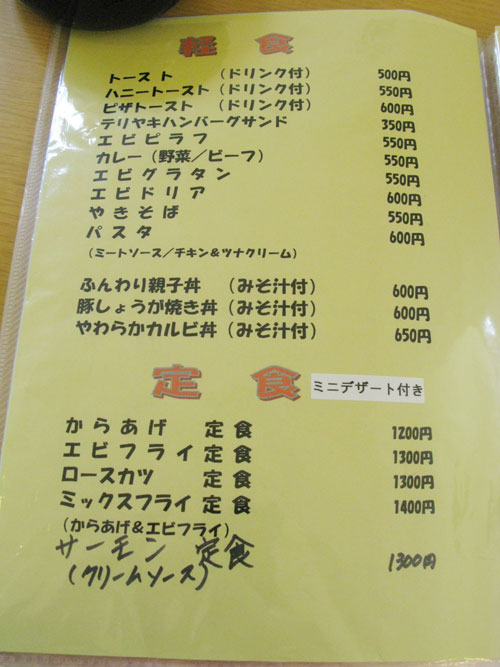 軽食
トースト （ドリンク付） 500円
ハニートースト（ドリンク付） 550円
ピザトースト （ドリンク付） 600円
テリヤキハンバーグサンド 350円
エビピラフ 550円
カレー（野菜／ビーフ） 550円
エビグラタン 550円
エビドリア 600円
やきそば 550円
パスタ 600円
（ミートソース／チキン＆ツナクリーム）
ふんわり親子丼 （みそ汁付） 600円
豚しょうが焼き丼（みそ汁付） 600円
やわらかカルビ丼（みそ汁付） 650円
定食 ミニデザート付き
からあげ 定食 1200円
エビフライ 定食 1300円
ロースカツ 定食 1300円
ミックスフライ 定食 1400円
（からあげ＆エビフライ）
サーモン 定食 1300円
（クリームソース）